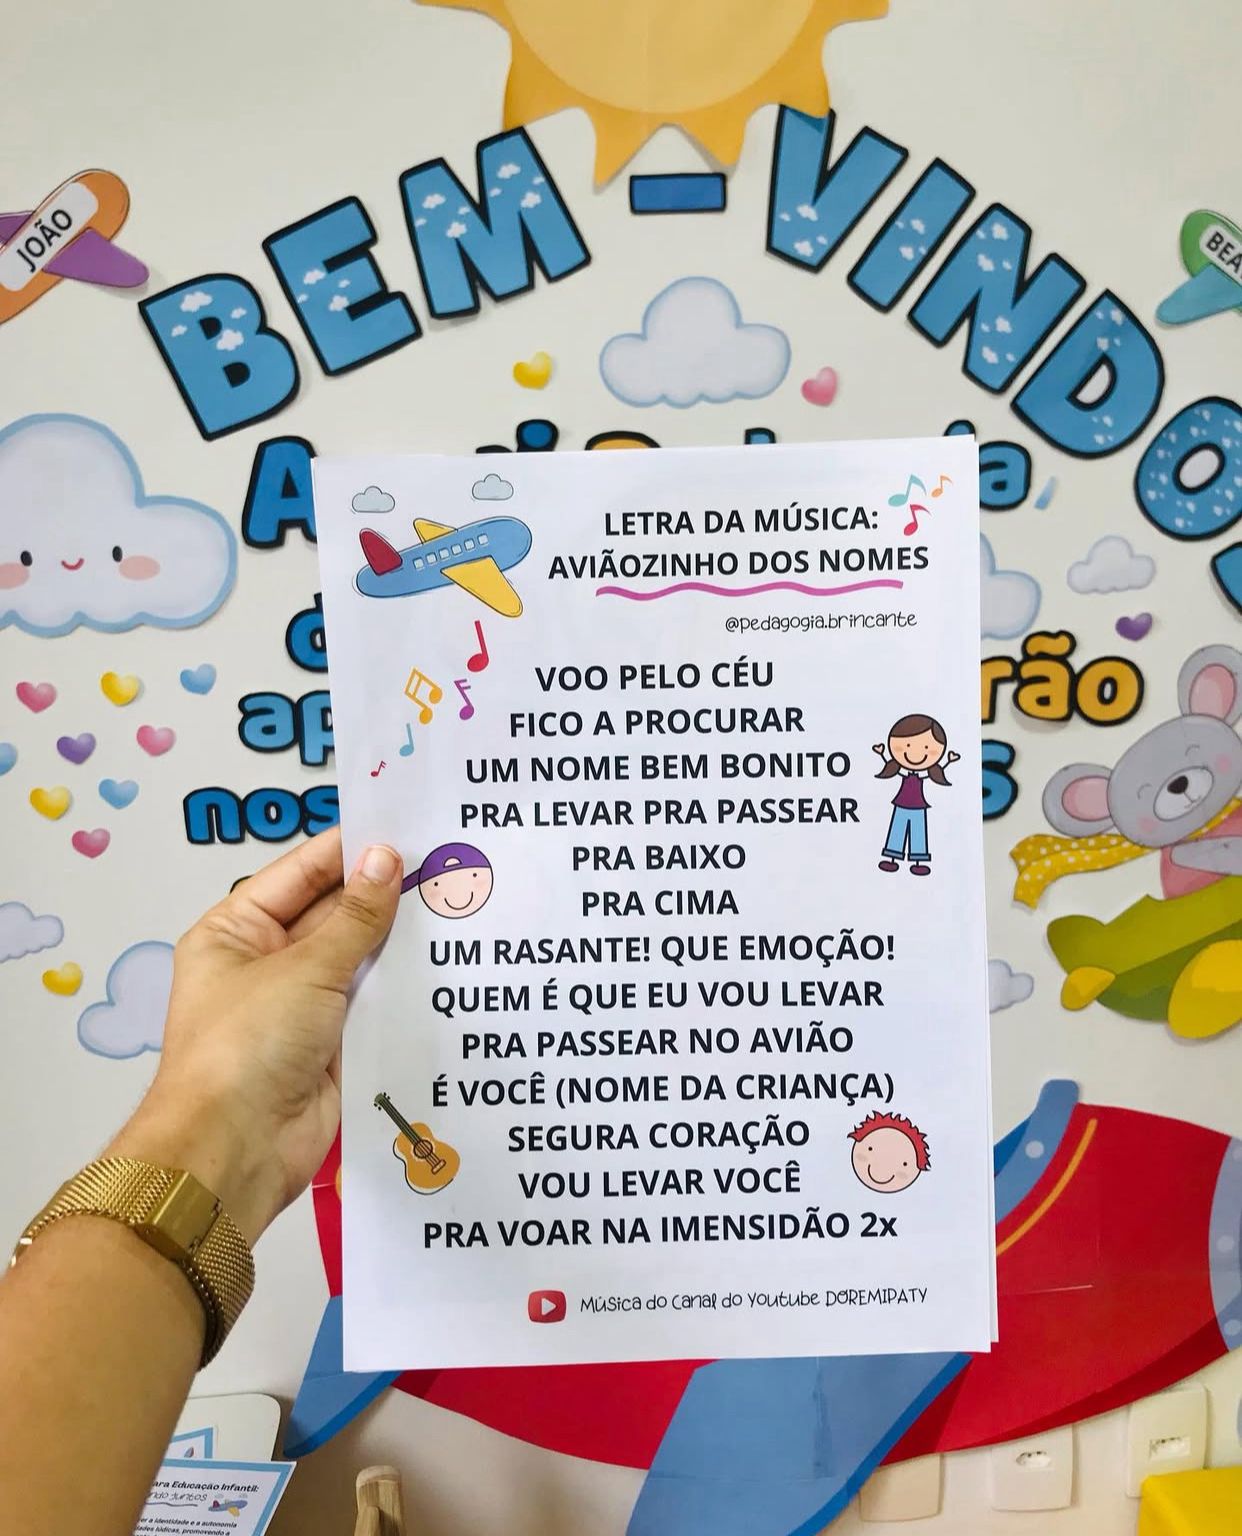 BEM-VINDO
JOÃO
LETRA DA MÚSICA:
AVIÃOZINHO DOS NOMES
@pedagogia.brincante
VOO PELO CÉU
FICO A PROCURAR
UM NOME BEM BONITO
PRA LEVAR PRA PASSEAR
PRA BAIXO
PRA CIMA
UM RASANTE! QUE EMOÇÃO!
QUEM É QUE EU VOU LEVAR
PRA PASSEAR NO AVIÃO
É VOCÊ (NOME DA CRIANÇA)
SEGURA CORAÇÃO
VOU LEVAR VOCÊ
PRA VOAR NA IMENSIDÃO 2x
Música do Canal do Youtube DÓREMIPATY
ara Educação Infantil: